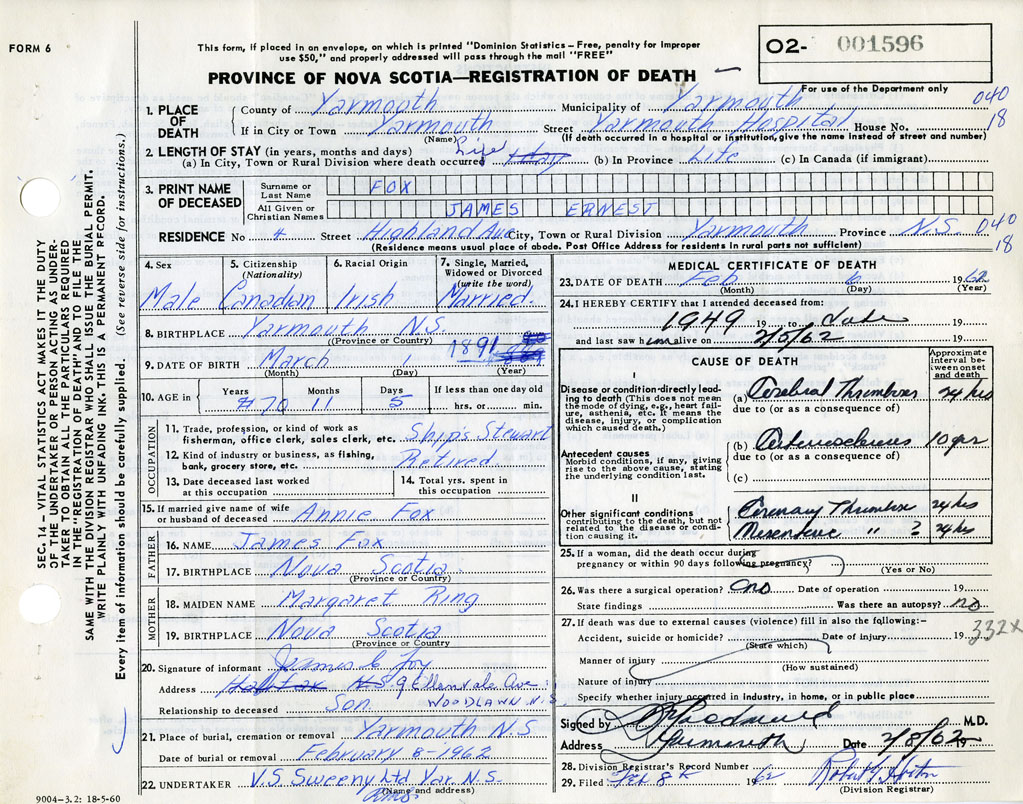 FORM 6
This form, if placed in an envelope, on which is printed "Dominion Statistics – Free, penalty for improper
use $50," and properly addressed will pass through the mail "FREE"
O2- 001596
PROVINCE OF NOVA SCOTIA—REGISTRATION OF DEATH
For use of the Department only
1. PLACE OF DEATH
County of Yarmouth Municipality of Yarmouth 040
If in City or Town Yarmouth Street Yarmouth Hospital House No. 18
(Name) (If death occurred in a hospital or institution, give the name instead of street and number)
2. LENGTH OF STAY (in years, months and days)
(a) In City, Town or Rural Division where death occurred Life (b) In Province Life (c) In Canada (if immigrant)
3. PRINT NAME OF DECEASED
Surname or Last Name FOX
All Given or Christian Names JAMES ERNEST
RESIDENCE No 4 Street Highland Ave City, Town or Rural Division Yarmouth Province N.S. 040
(Residence means usual place of abode. Post Office Address for residents in rural parts not sufficient) 18
4. Sex Male
5. Citizenship (Nationality) Canadian
6. Racial Origin Irish
7. Single, Married, Widowed or Divorced (write the word) Married.
8. BIRTHPLACE Yarmouth N.S.
(Province or Country)
9. DATE OF BIRTH March 1 1891
(Month) (Day) (Year)
10. AGE in Years 70 Months 11 Days 5 If less than one day old hrs. or min.
OCCUPATION
11. Trade, profession, or kind of work as
fisherman, office clerk, sales clerk, etc. Ship's Stewart
12. Kind of industry or business, as fishing,
bank, grocery store, etc. Retired
13. Date deceased last worked
at this occupation
14. Total yrs. spent in
this occupation
15. If married give name of wife
or husband of deceased Annie Fox
FATHER
16. NAME James Fox
17. BIRTHPLACE Nova Scotia
(Province or Country)
MOTHER
18. MAIDEN NAME Margaret Ring
19. BIRTHPLACE Nova Scotia
(Province or Country)
20. Signature of informant James
Address Halifax N.S. 9 Ellenvale Ave
WOODLAWN N.S.
Relationship to deceased Son
21. Place of burial, cremation or removal Yarmouth N.S
Date of burial or removal February 8-1962
22. UNDERTAKER V.S. Sweeny Ltd Yar. N.S.
(Name and address)
9004-3.2: 18-5-60
MEDICAL CERTIFICATE OF DEATH
23. DATE OF DEATH Feb 6 1962
(Month) (Day) (Year)
24. I HEREBY CERTIFY that I attended deceased from:
1949 19 to date 19
and last saw him alive on 2/5/62 19
CAUSE OF DEATH
Approximate interval between onset and death
I
Disease or condition directly leading to death (This does not mean the mode of dying, e.g., heart failure, asthenia, etc. It means the disease, injury, or complication which caused death.)
(a) Cerebral Thrombosis 24 hrs
due to (or as a consequence of)
Antecedent causes
Morbid conditions, if any, giving rise to the above cause, stating the underlying condition last.
(b) 10 yrs
due to (or as a consequence of)
(c)
II
Other significant conditions contributing to the death, but not related to the disease or condition causing it.
Coronary Thrombosis 24 hrs
Mesenteric " ? 24 hrs
25. If a woman, did the death occur during
pregnancy or within 90 days following pregnancy?
(Yes or No)
26. Was there a surgical operation? no Date of operation 19
State findings Was there an autopsy? no
27. If death was due to external causes (violence) fill in also the following:-
Accident, suicide or homicide? Date of injury 19 332X
(State which)
Manner of injury
(How sustained)
Nature of injury
Specify whether injury occurred in industry, in home, or in public place
Signed by M.D.
Address Yarmouth Date 2/8/62 19
28. Division Registrar's Record Number
29. Filed Feb 8 1962
(Division Registrar)
SEC. 14 — VITAL STATISTICS ACT MAKES IT THE DUTY
OF THE UNDERTAKER OR PERSON ACTING AS UNDER-
TAKER TO OBTAIN ALL THE PARTICULARS REQUIRED
IN THE "REGISTRATION OF DEATH" AND TO FILE THE
SAME WITH THE DIVISION REGISTRAR WHO SHALL ISSUE THE BURIAL PERMIT.
WRITE PLAINLY WITH UNFADING INK. THIS IS A PERMANENT RECORD.
Every item of information should be carefully supplied. (See reverse side for instructions.)